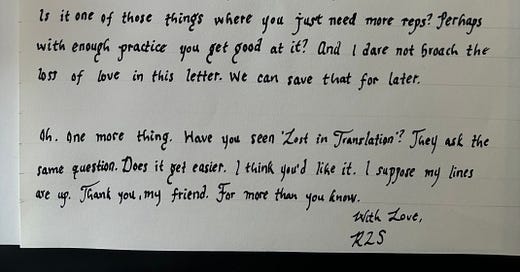 Is it one of those things where you just need more reps? Perhaps
with enough practice you get good at it? And I dare not broach the
loss of love in this letter. We can save that for later.
Oh. One more thing. Have you seen 'Lost in Translation'? They ask the
same question. Does it get easier. I think you'd like it. I suppose my lines
are up. Thank you, my friend. For more than you know.
With Love,
RLS